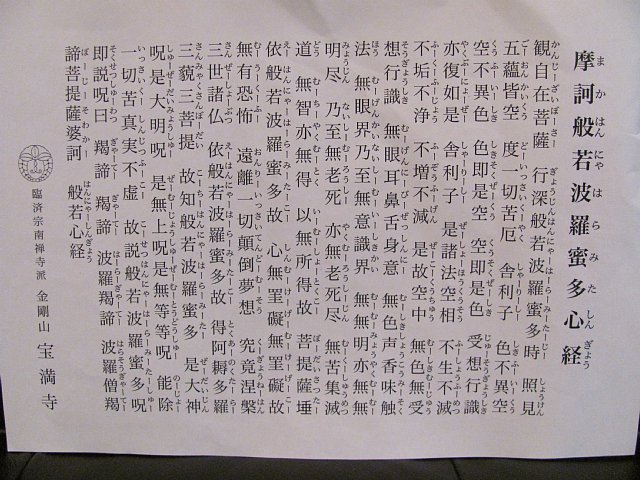 摩訶般若波羅蜜多心経
観自在菩薩 行深般若波羅蜜多時 照見
五蘊皆空 度一切苦厄 舎利子 色不異空
空不異色 色即是空 空即是色 受想行識
亦復如是 舎利子 是諸法空相 不生不滅
不垢不浄 不増不減 是故空中 無色無受
想行識 無眼耳鼻舌身意 無色声香味触
法 無眼界乃至無意識界 無無明亦無無
明尽 乃至無老死 亦無老死尽 無苦集滅
道 無智亦無得 以無所得故 菩提薩埵
依般若波羅蜜多故 心無罣礙無罣礙故
無有恐怖 遠離一切顛倒夢想 究竟涅槃
三世諸仏 依般若波羅蜜多故 得阿耨多羅
三藐三菩提 故知般若波羅蜜多 是大神
呪是大明呪 是無上呪是無等等呪 能除
一切苦真実不虚 故説般若波羅蜜多呪
即説呪曰 羯諦 羯諦 波羅羯諦 波羅僧羯
諦菩提薩婆訶 般若心経
臨済宗南禅寺派 金剛山 宝満寺